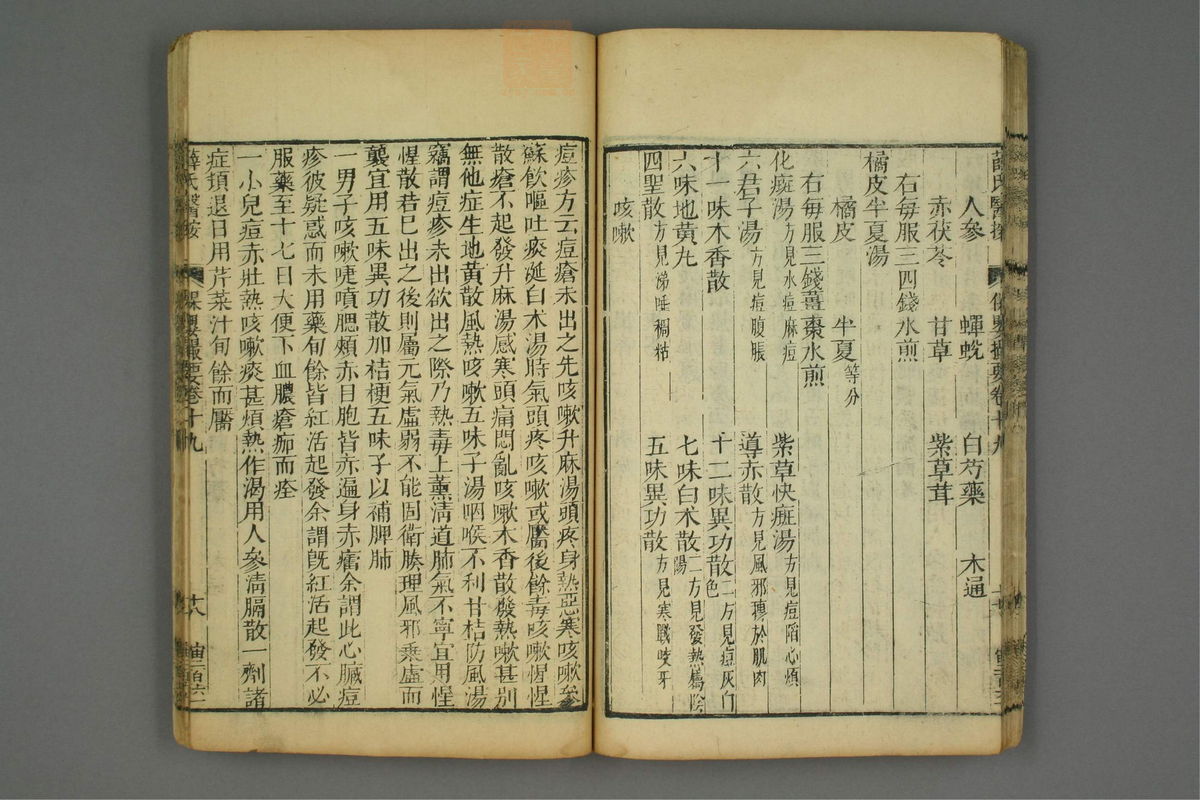 人參　蟬蛻　白芍藥　木通
赤茯苓　甘草　紫草茸
右每服三四錢水煎
橘皮半夏湯
橘皮　半夏等分
右每服三錢薑棗水煎
化癍湯方見水痘麻痘　紫草快癍湯方見痘陷心煩
六君子湯方見痘腹脹　導赤散方見風邪摶於肌肉
十一味木香散　十二味異功散二方見痘灰色
六味地黃丸　七味白朮散二方見發熱屬陰陽
四聖散方見涕唾稠粘　五味異功散方見寒戰咬牙
咳嗽
痘疹方云痘瘡未出之先咳嗽升麻湯頭疼身熱惡寒咳嗽參
蘇飲嘔吐痰涎白朮湯時氣頭疼咳嗽或靨後餘毒咳嗽惺惺
散瘡不起發升麻湯感寒頭痛悶亂咳嗽木香散發熱嗽甚別
無他症生地黃散風熱咳嗽五味子湯咽喉不利甘桔防風湯
竊謂痘疹未出欲出之際乃熱毒上薰清道肺氣不寧宜用惺
惺散若巳出之後則屬元氣虛弱不能固衛腠理風邪乘虛而
襲宜用五味異功散加桔梗五味子以補脾肺
一男子咳嗽嚏噴腮頰赤目胞皆赤遍身赤癗余謂此心臟痘
疹彼疑惑而未用藥旬餘皆紅活起發余謂旣紅活起發不必
服藥至十七日大便下血膿瘡痂而痊
一小兒痘赤壯熱咳嗽痰甚煩熱作渴用人參清膈散一劑諸
症頓退日用芹菜汁旬餘而靨
薛氏醫按　保嬰撮要卷十九　十八